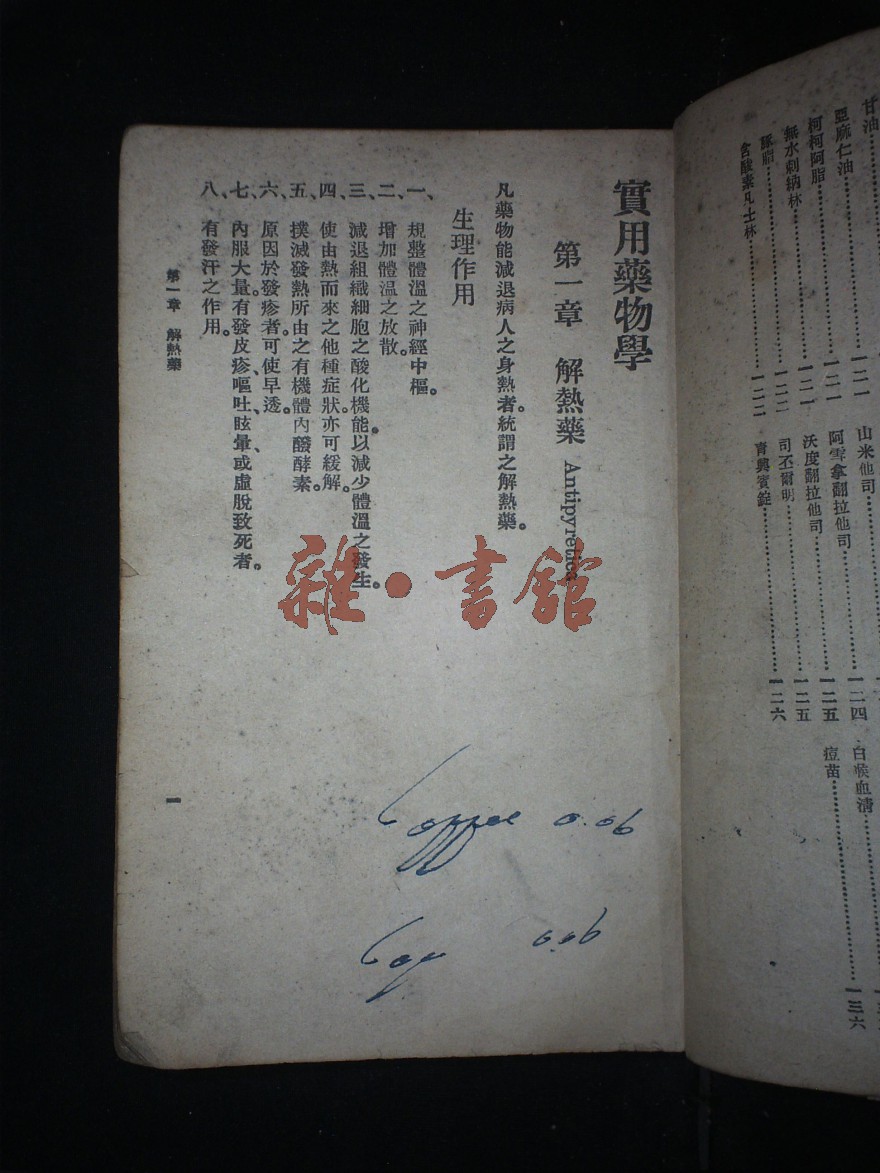 實用藥物學
第一章　解熱藥 Antipyretica
凡藥物能減退病人之身熱者。統謂之解熱藥。
生理作用
一、規整體溫之神經中樞。
二、增加體溫之放散。
三、減退組織細胞之酸化機能。以減少體溫之發生。
四、使由熱而來之他種症狀。亦可緩解。
五、撲滅發熱所由之有機體內醱酵素。
六、原因於發疹者。可使早透。
七、內服大量。有發皮疹、嘔吐、眩暈、或虛脫致死者。
八、有發汗之作用。
第一章　解熱藥
一
雜·書館
0.06
0.06
甘油
亞麻仁油……一二一
柯柯阿脂……一二一
無水剌納林……一二一
豚脂……一二二
含酸素凡士林……一二二
山米他司……一二四
阿雪拿翻拉他司……一二五
沃度翻拉他司……一二五
司丕爾明……一二五
賓錠……一二六
白喉血清
痘苗……一三六